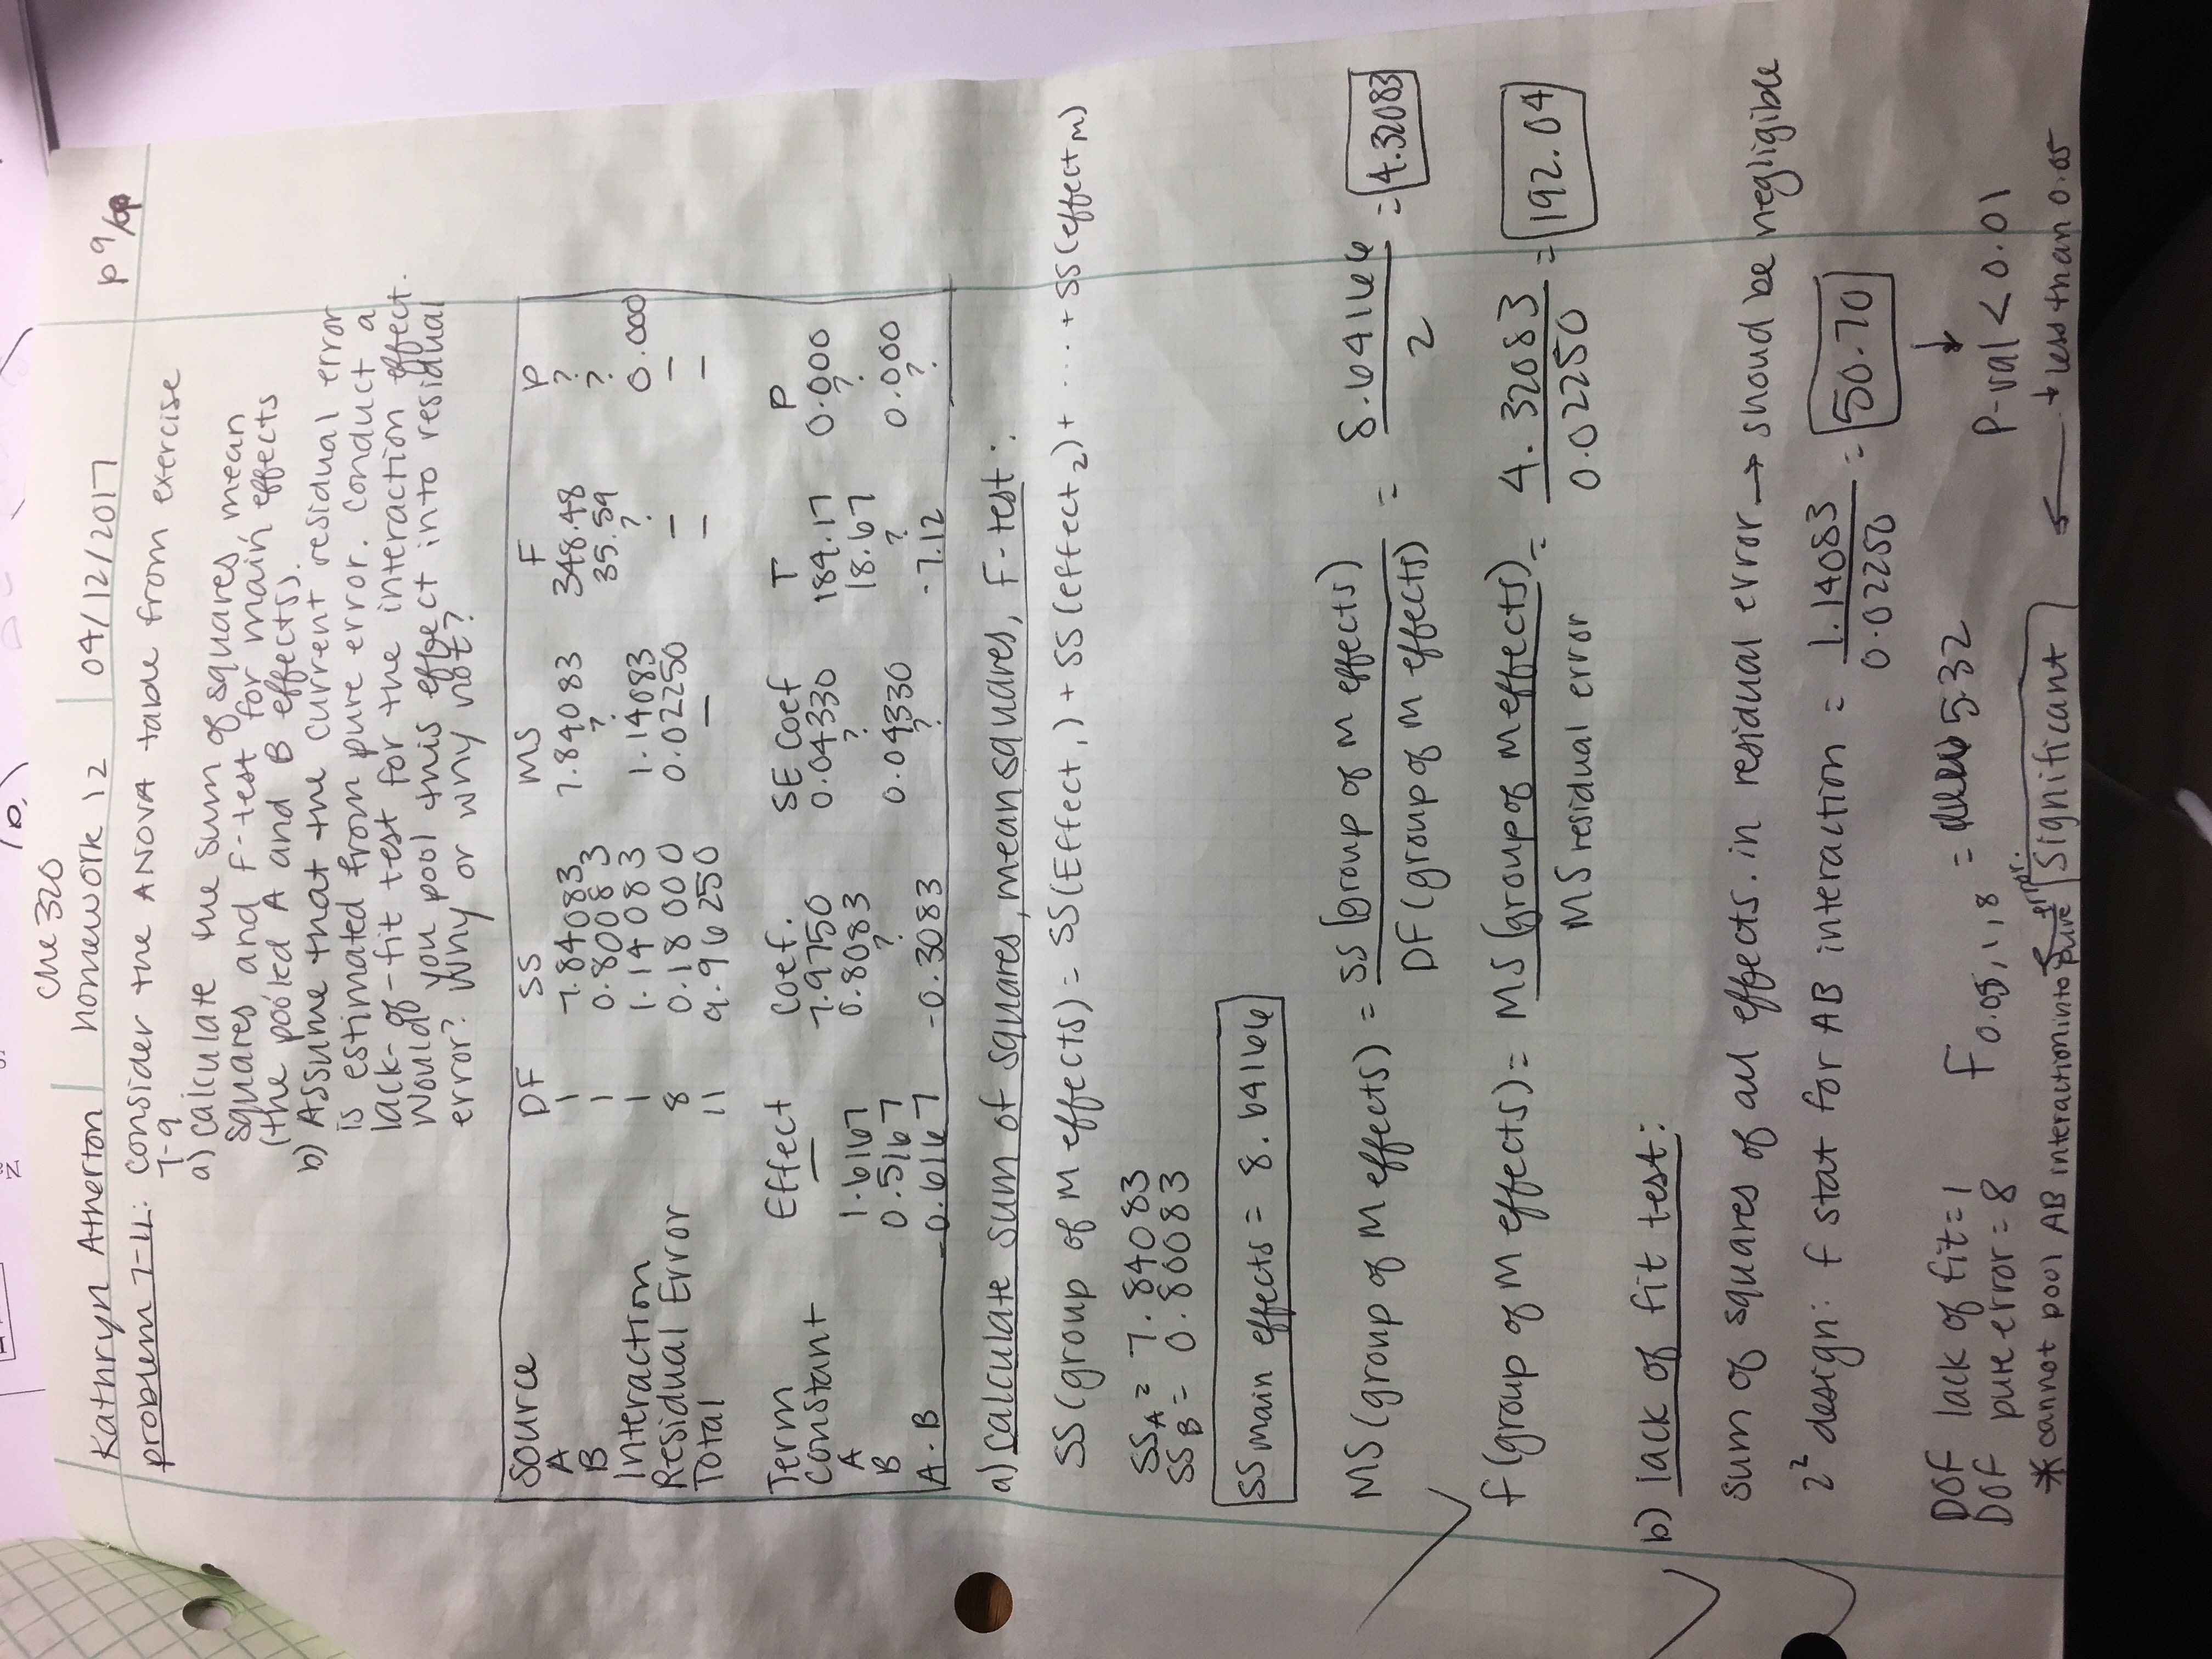 Che 320
Kathryn Atherton homework 12 04/12/2017 p 9/
problem 7-11: Consider the ANOVA table from exercise
7-9.
a) calculate the sum of squares, mean
squares, and F-test for main effects
(the pooled A and B effects).
b) Assume that the current residual error
is estimated from pure error. Conduct a
lack-of-fit test for the interaction effect.
Would you pool this effect into residual
error? Why or why not?
Source DF SS MS F P
A 1 7.84083 7.84083 348.48 ?
B 1 0.80083 ? 35.59 ?
Interaction 1 1.14083 1.14083 ? 0.000
Residual Error 8 0.18000 0.02250 — —
Total 11 9.96250 — — —
Term Effect Coef. SE Coef T P
Constant — 7.9750 0.04330 184.17 0.000
A 1.6167 0.8083 ? 18.67 ?
B 0.5167 ? 0.04330 ? 0.000
A·B -0.6167 -0.3083 ? -7.12 ?
a) calculate sum of squares, mean squares, F-test:
SS (group of M effects) = SS (Effect1) + SS (effect2) + ... + SS (effectM)
SSA = 7.84083
SSB = 0.80083
SS main effects = 8.64166
MS (group of M effects) = SS (group of M effects) / DF (group of M effects) = 8.64166 / 2 = 4.32083
f (group of M effects) = MS (group of M effects) / MS residual error = 4.32083 / 0.02250 = 192.04
b) lack of fit test:
sum of squares of all effects. in residual error → shoud be negligible
2² design: f stat for AB interaction = 1.14083 / 0.02250 = 50.70
↓
DOF lack of fit = 1 F0.05, 1, 8 = 5.32
DOF pure error = 8 P-val < 0.01
* cannot pool AB interaction into pure error. Significant ← ↓ less than 0.05